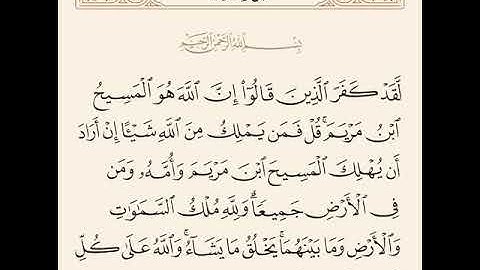 بِسْمِ ٱللَّهِ ٱلرَّحْمَٰنِ ٱلرَّحِيمِ
لَّقَدْ كَفَرَ ٱلَّذِينَ قَالُوٓا۟ إِنَّ ٱللَّهَ هُوَ ٱلْمَسِيحُ
ٱبْنُ مَرْيَمَ ۚ قُلْ فَمَن يَمْلِكُ مِنَ ٱللَّهِ شَيْـًٔا إِنْ أَرَادَ
أَن يُهْلِكَ ٱلْمَسِيحَ ٱبْنَ مَرْيَمَ وَأُمَّهُۥ وَمَن
فِى ٱلْأَرْضِ جَمِيعًا ۗ وَلِلَّهِ مُلْكُ ٱلسَّمَٰوَٰتِ
وَٱلْأَرْضِ وَمَا بَيْنَهُمَا ۚ يَخْلُقُ مَا يَشَآءُ ۚ وَٱللَّهُ عَلَىٰ كُلِّ